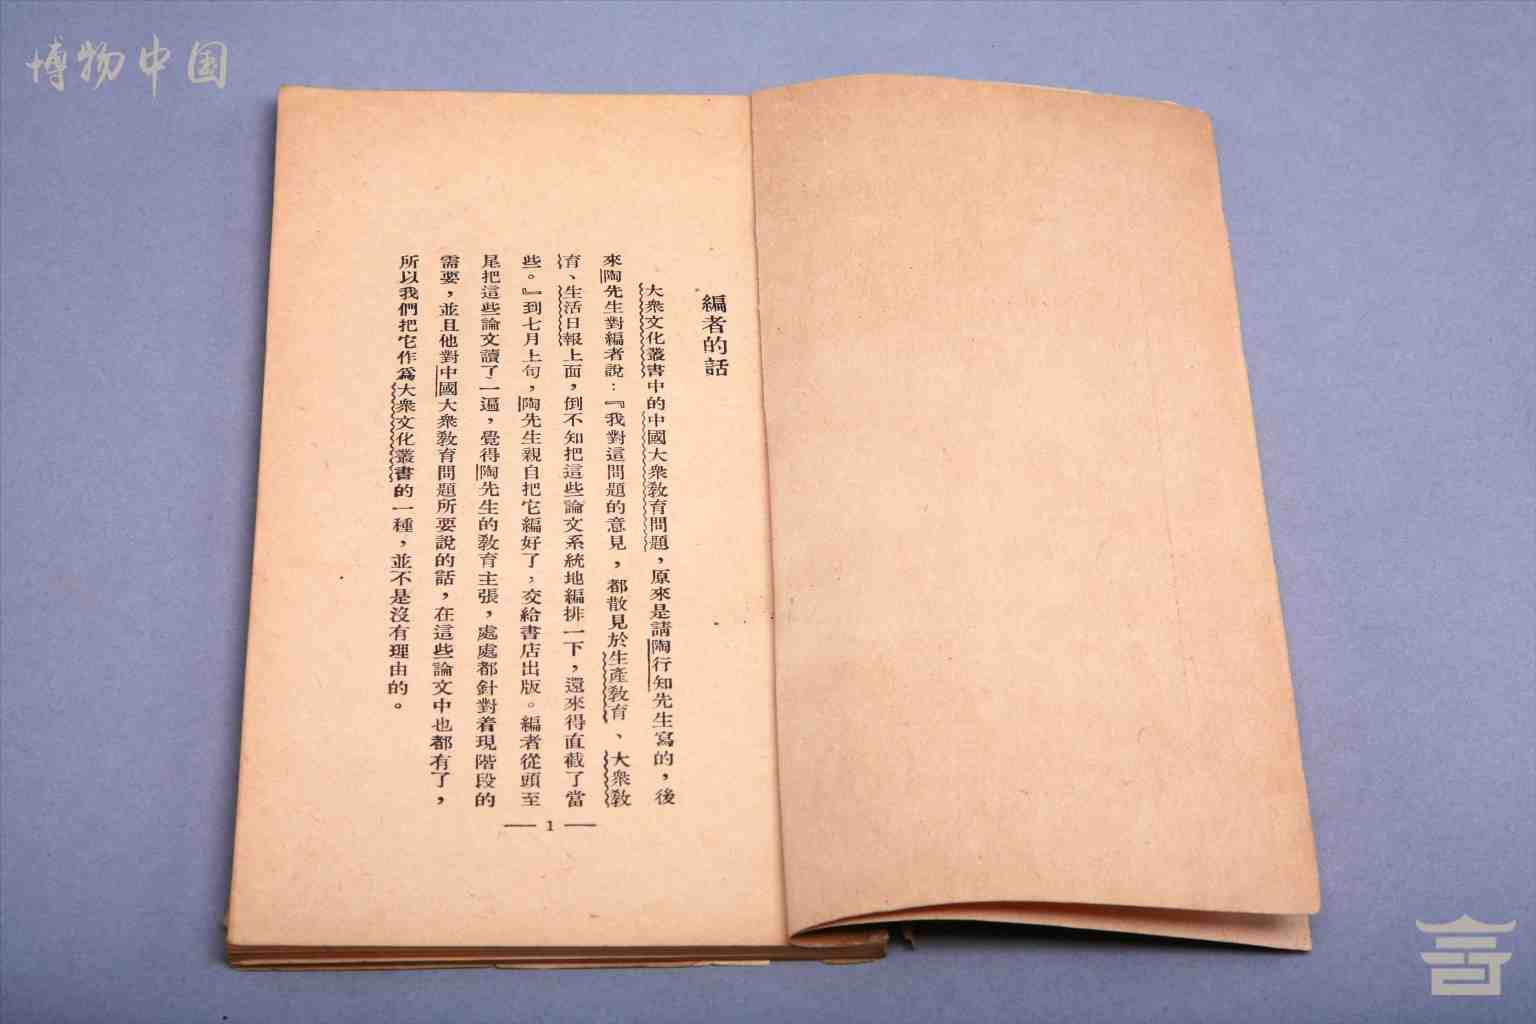 博物中国
編者的話
大衆文化叢書中的中國大衆教育問題，原來是請陶行知先生寫的，後
來陶先生對編者說：『我對這問題的意見，都散見於生產教育、大衆教
育、生活日報上面，倒不知把這些論文系統地編排一下，還來得直截了當
些。』到七月上旬，陶先生親自把它編好了，交給書店出版。編者從頭至
尾把這些論文讀了一遍，覺得陶先生的教育主張，處處都針對着現階段的
需要，並且他對中國大衆教育問題所要說的話，在這些論文中也都有了，
所以我們把它作爲大衆文化叢書的一種，並不是沒有理由的。
— 1 —